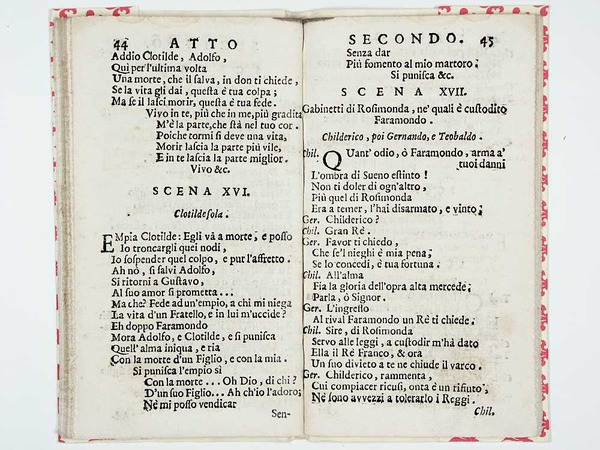 44 ATTO
Addio Clotilde, Adolfo,
Qui per l'ultima volta
Una morte, che il salva, in don ti chiede,
Se la vita gli dai, questa è tua colpa;
Ma se il lasci morir, questa è tua fede.
Vivo in te, più che in me, più gradita
M'è la parte, che stà nel tuo cor.
Poiche tormi si deve una vita,
Morir lascia la parte più vile,
E in te lascia la parte miglior.
Vivo &c.
SCENA XVI.
Clotilde sola.
EMpia Clotilde: Egli và a morte, e posso
Io troncargli quei nodi,
Io sospender quel colpo, e pur l'affretto.
Ah nò, si salvi Adolfo,
Si ritorni a Gustavo,
Al suo amor si prometta...
Ma che? Fede ad un'empio, a chi mi niega
La vita d'un Fratello, e in lui m'uccide?
Eh doppo Faramondo
Mora Adolfo, e Clotilde, e si punisca
Quell'alma iniqua, e ria
Con la morte d'un Figlio, e con la mia.
Si punisca l'empio sì
Con la morte... Oh Dio, di chi?
D'un suo Figlio... Ah ch'io l'adoro;
Nè mi posso vendicar
Sen-
SECONDO. 45
Senza dar
Più fomento al mio martoro;
Si punisca &c.
SCENA XVII.
Gabinetti di Rosimonda, ne' quali è custodito
Faramondo.
Childerico, poi Gernando, e Teobaldo.
Chil. QUant' odio, ò Faramondo, arma a'
tuoi danni
L'ombra di Sueno estinto!
Non ti doler di ogn'altro,
Più quel di Rosimonda
Era a temer, l'hai disarmato, e vinto;
Ger. Childerico?
Chil. Gran Rè.
Ger. Favor ti chiedo,
Che se'l nieghi è mia pena;
Se lo concedi, è tua fortuna.
Chil. All'alma
Fia la gloria dell'opra alta mercede;
Parla, ò Signor.
Ger. L'ingresso
Al rival Faramondo un Rè ti chiede.
Chil. Sire, di Rosimonda
Servo alle leggi, a custodir m'hà dato
Ella il Rè Franco, & ora
Un suo divieto a te ne chiude il varco.
Ger. Childerico, rammenta,
Cui compiacer ricusi, onta è un rifiuto;
Nè sono avvezzi a tolerarlo i Reggi.
Chil.